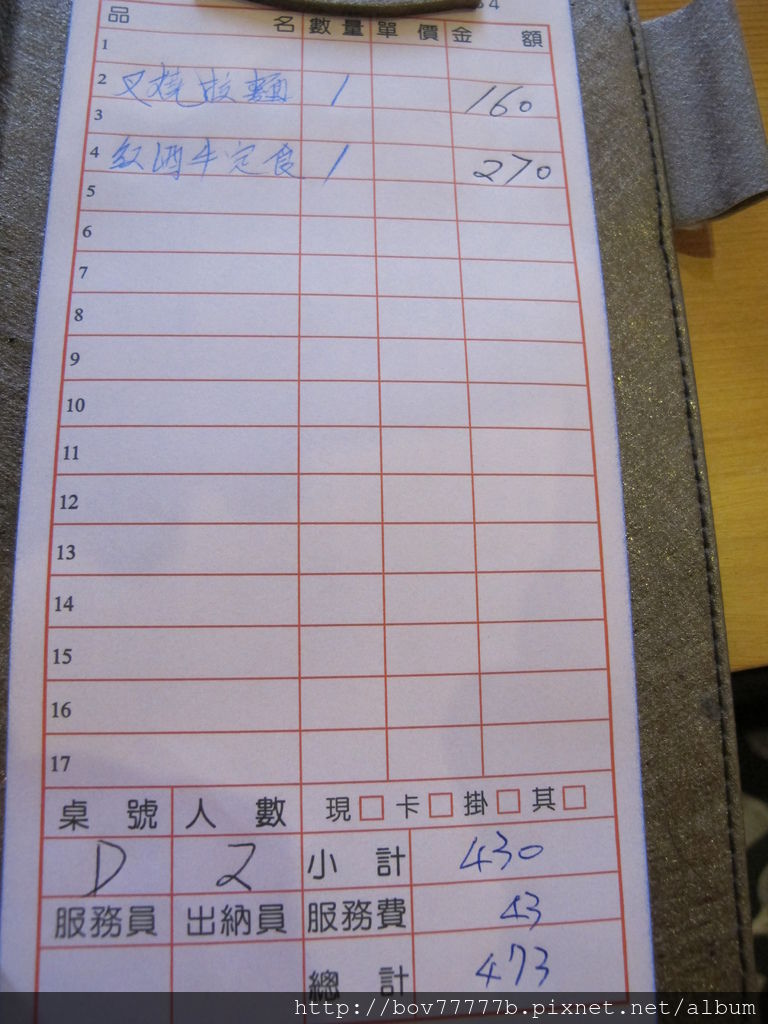 54
品 名 數量 單價 金額
1
2 叉燒拉麵 1 160
3
4 紅酒牛定食 1 270
5
6
7
8
9
10
11
12
13
14
15
16
17
桌號 人數 現□ 卡□ 掛□ 其□
D 2 小計 430
服務員 出納員 服務費 43
總計 473
http://bov77777b.pixnet.net/album